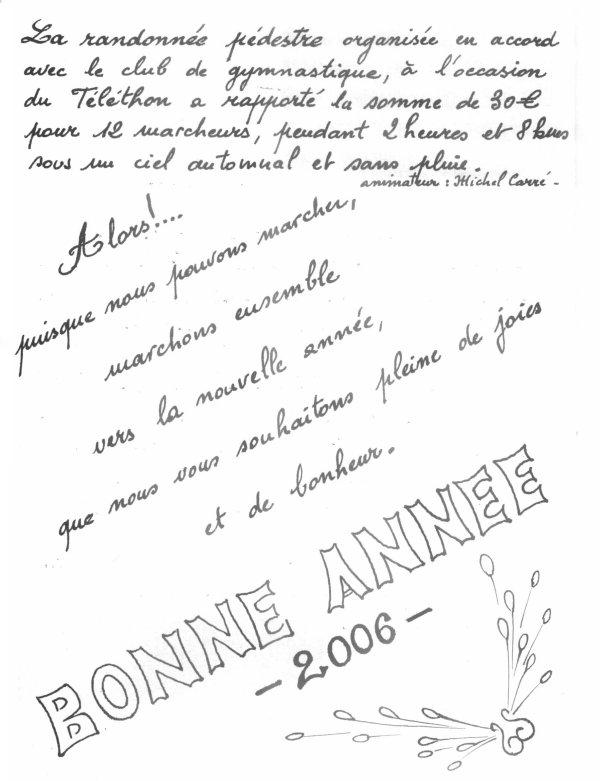 La randonnée pédestre organisée en accord
avec le club de gymnastique, à l'occasion
du Téléthon a rapporté la somme de 30€
pour 12 marcheurs, pendant 2 heures et 8 kms
sous un ciel automnal et sans pluie.
animateur : Michel Carré -
Alors!....
puisque nous pouvons marcher,
marchons ensemble
vers la nouvelle année,
que nous vous souhaitons pleine de joies
et de bonheur.
BONNE ANNEE
- 2006 -